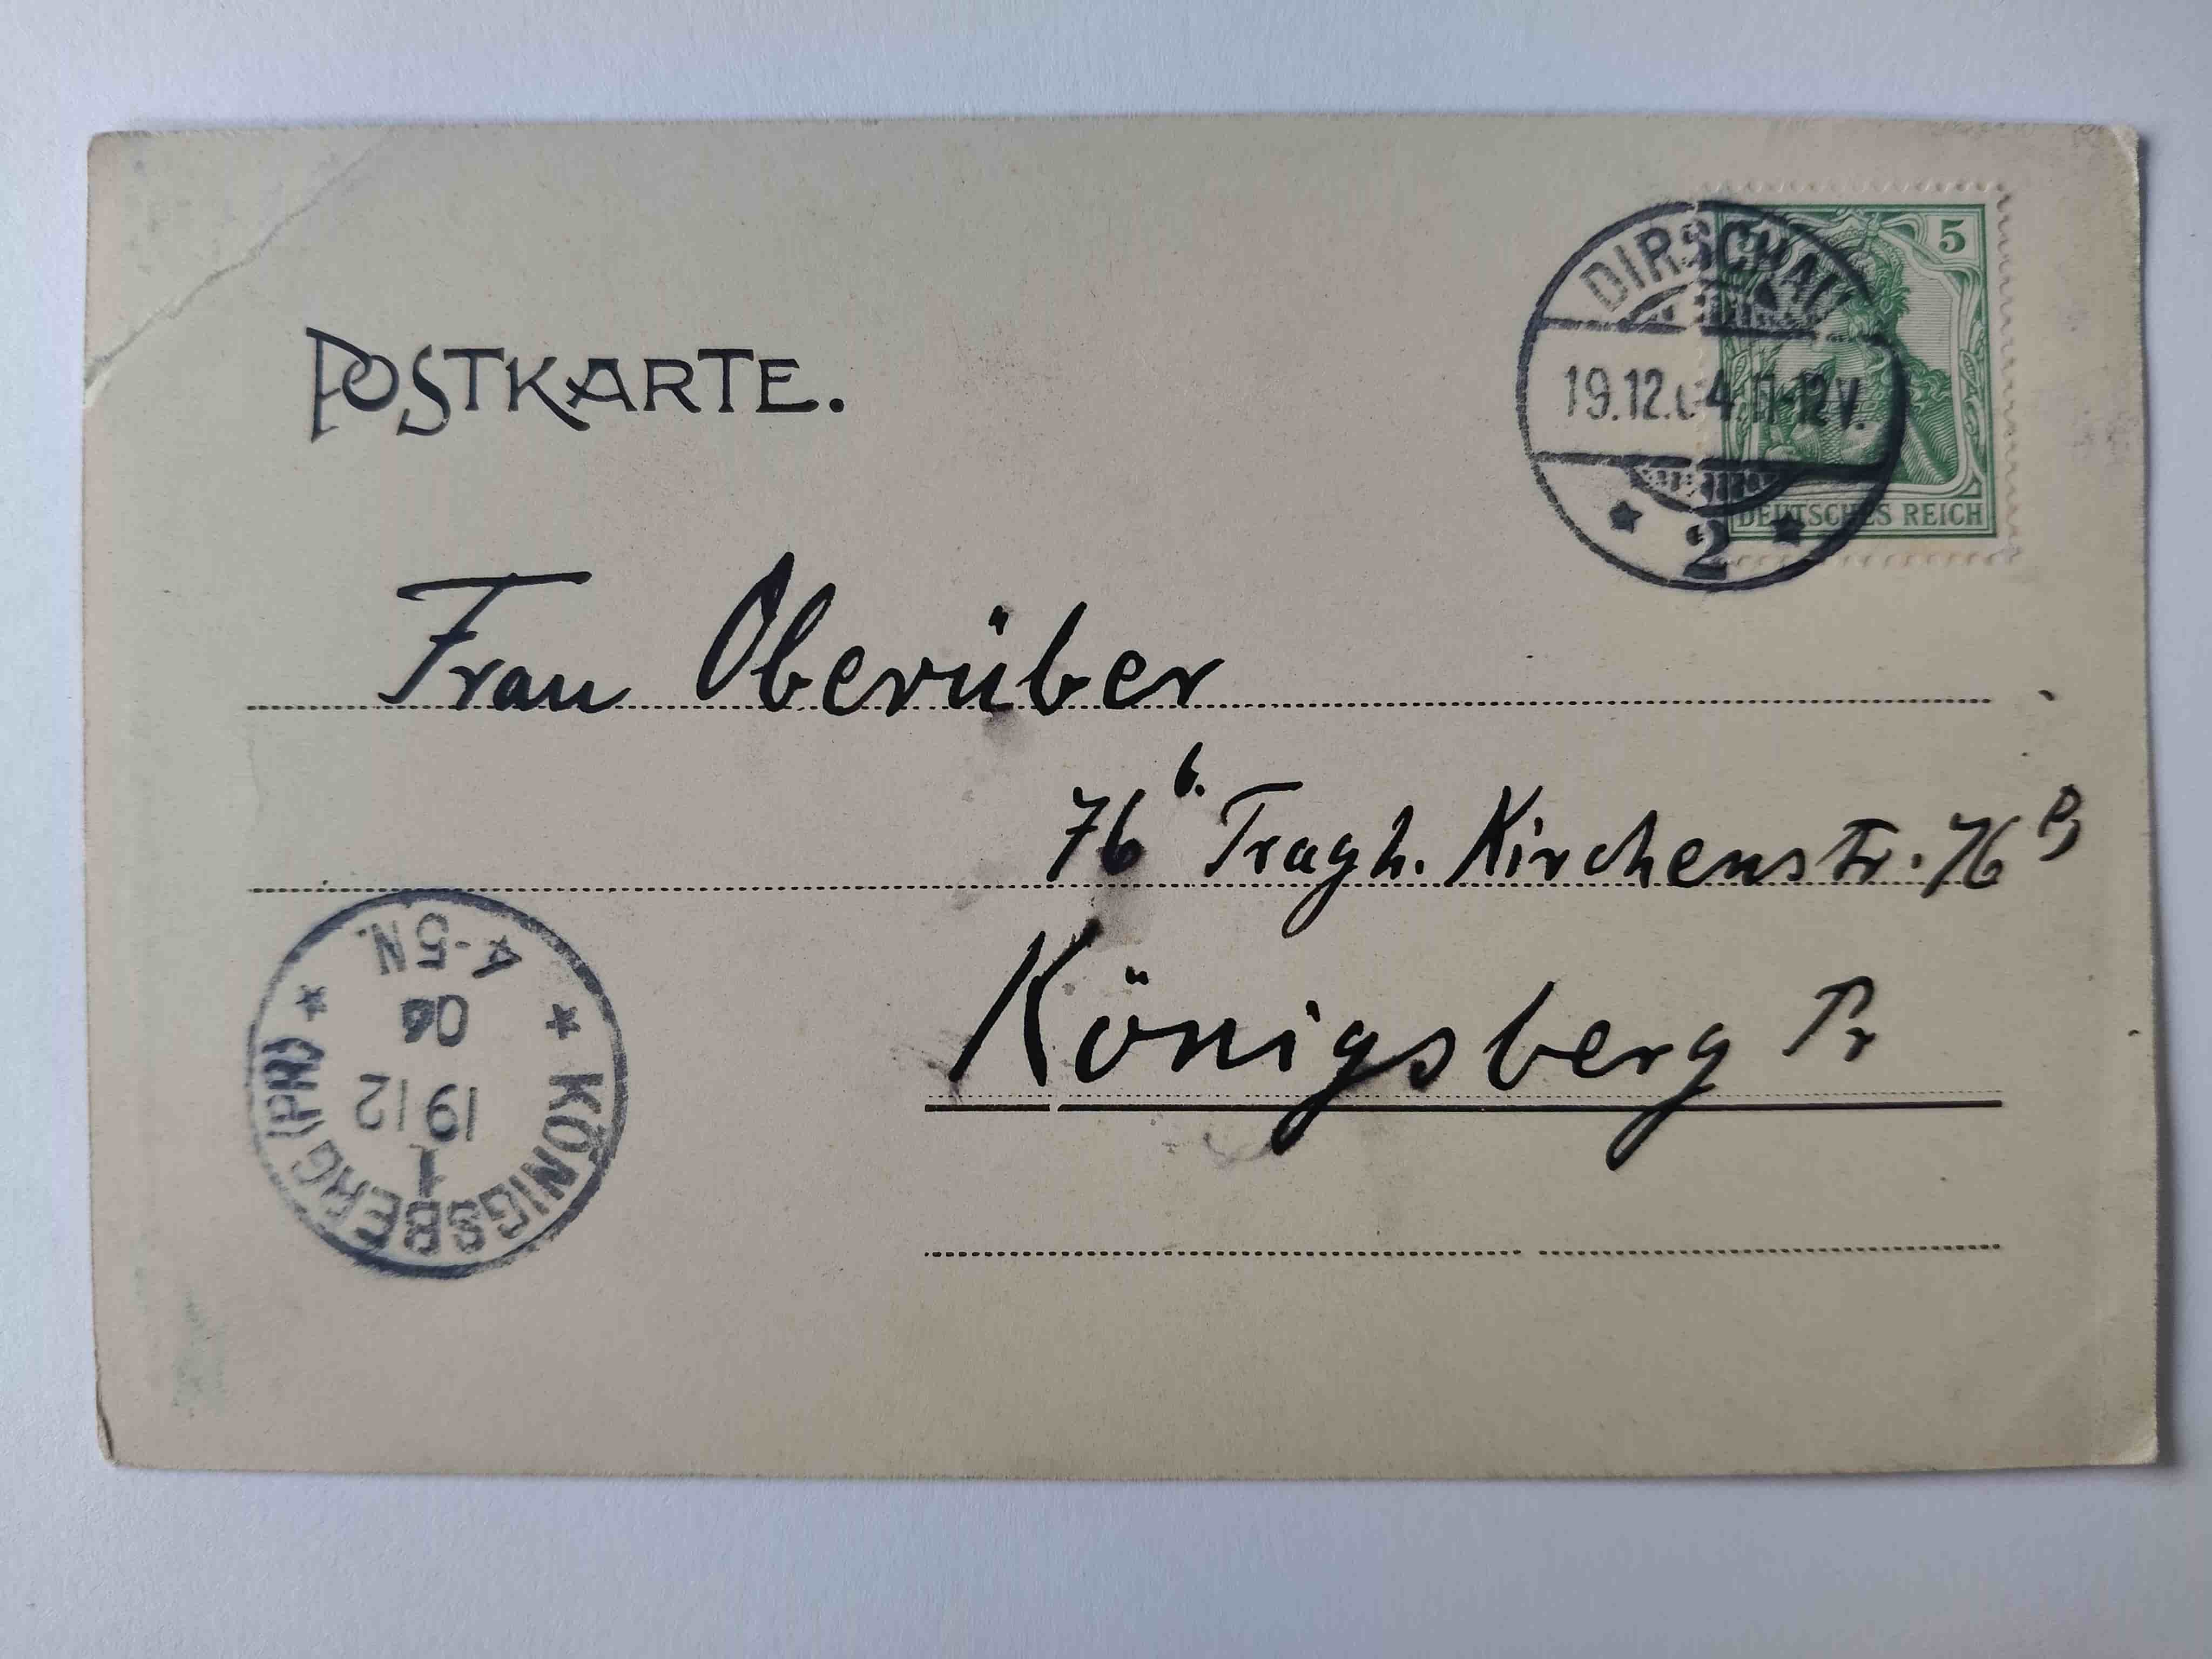 POSTKARTE.
5
DEUTSCHES REICH
DIRSCHAU
19.12.04.11-12V.
* 2 *
Frau Oberüber
76 b. Tragh. Kirchenstr. 76
Königsberg Pr
* KÖNIGSBERG (PR) *
1
19 12
04
4-5N.